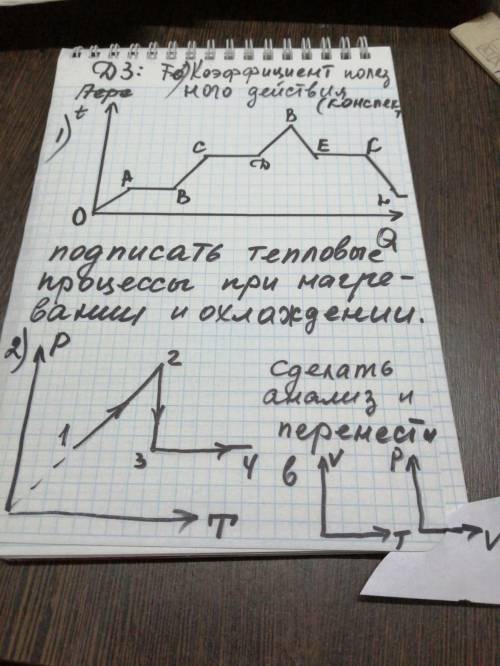 ДЗ: Коэффициент полез
ного действия
(конспект
t
1)
А
В
С
D
В
Е
F
L
О
Q
подписать тепловые
процессы при нагре-
вании и охлаждении.
2)
P
2
1
3
4
T
сделать
анализ и
перенести
в
V
T
P
V